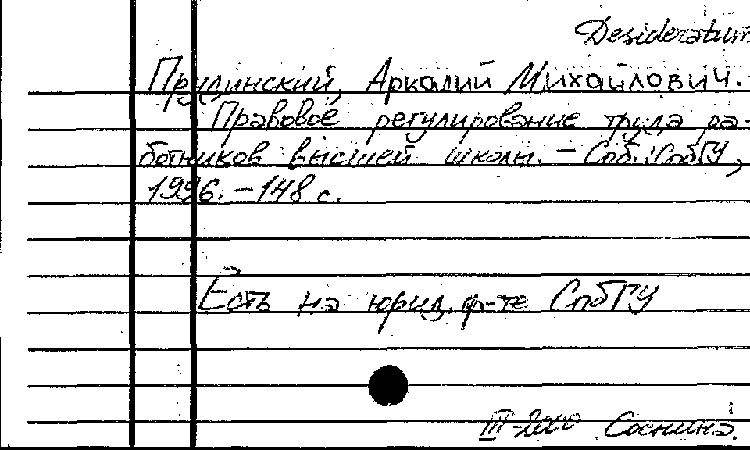 Desideratum
Прудинский, Аркадий Михайлович.
Правовое регулирование труда ра-
ботников высшей школы. – Спб.: СпбГУ,
1996. – 148 с.
Есть на юрид. ф-те СпбГУ
III-2000 Соснина.